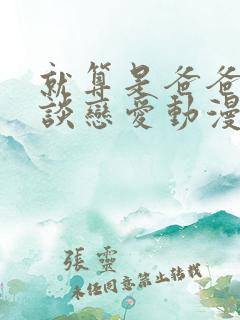 就算是爸爸
談戀愛動漫
張靈
未任同意禁止轉載